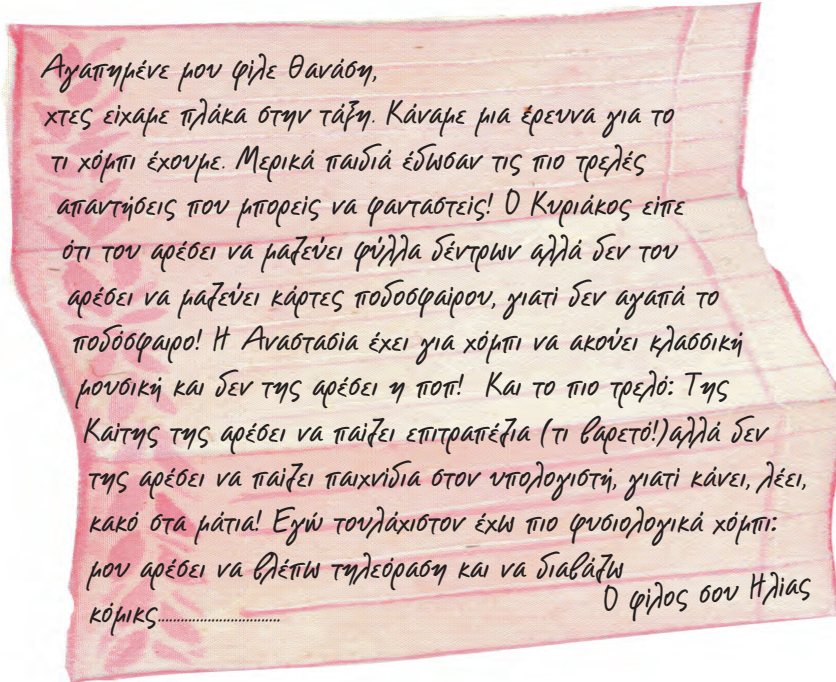 Αγαπημένε μου φίλε Θανάση,
χτες είχαμε πλάκα στην τάξη. Κάναμε μια έρευνα για το
τι χόμπι έχουμε. Μερικά παιδιά έδωσαν τις πιο τρελές
απαντήσεις που μπορείς να φανταστείς! Ο Κυριάκος είπε
ότι του αρέσει να μαζεύει φύλλα δέντρων αλλά δεν του
αρέσει να μαζεύει κάρτες ποδοσφαίρου, γιατί δεν αγαπά το
ποδόσφαιρο! Η Αναστασία έχει για χόμπι να ακούει κλασσική
μουσική και δεν της αρέσει η ποπ! Και το πιο τρελό: Της
Καίτης της αρέσει να παίζει επιτραπέζια (τι βαρετό!) αλλά δεν
της αρέσει να παίζει παιχνίδια στον υπολογιστή, γιατί κάνει, λέει,
κακό στα μάτια! Εγώ τουλάχιστον έχω πιο φυσιολογικά χόμπι:
μου αρέσει να βλέπω τηλεόραση και να διαβάζω
κόμικς..............................
Ο φίλος σου Ηλίας